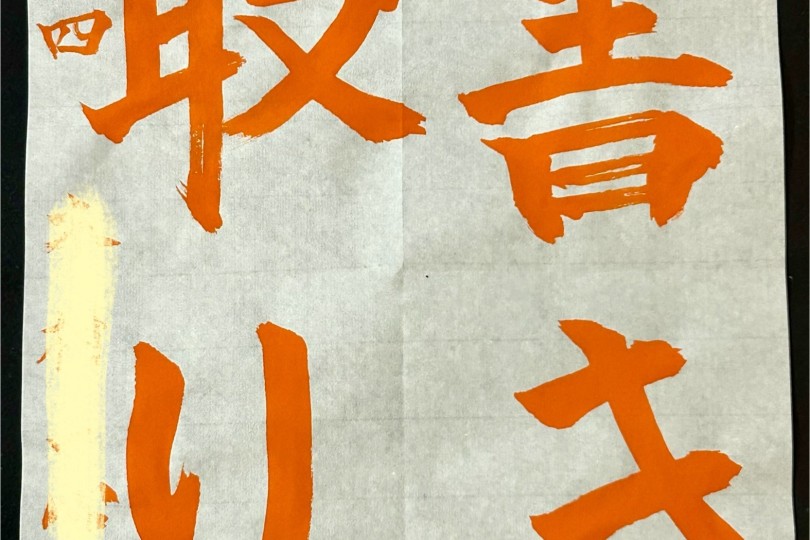 書き
取り
四